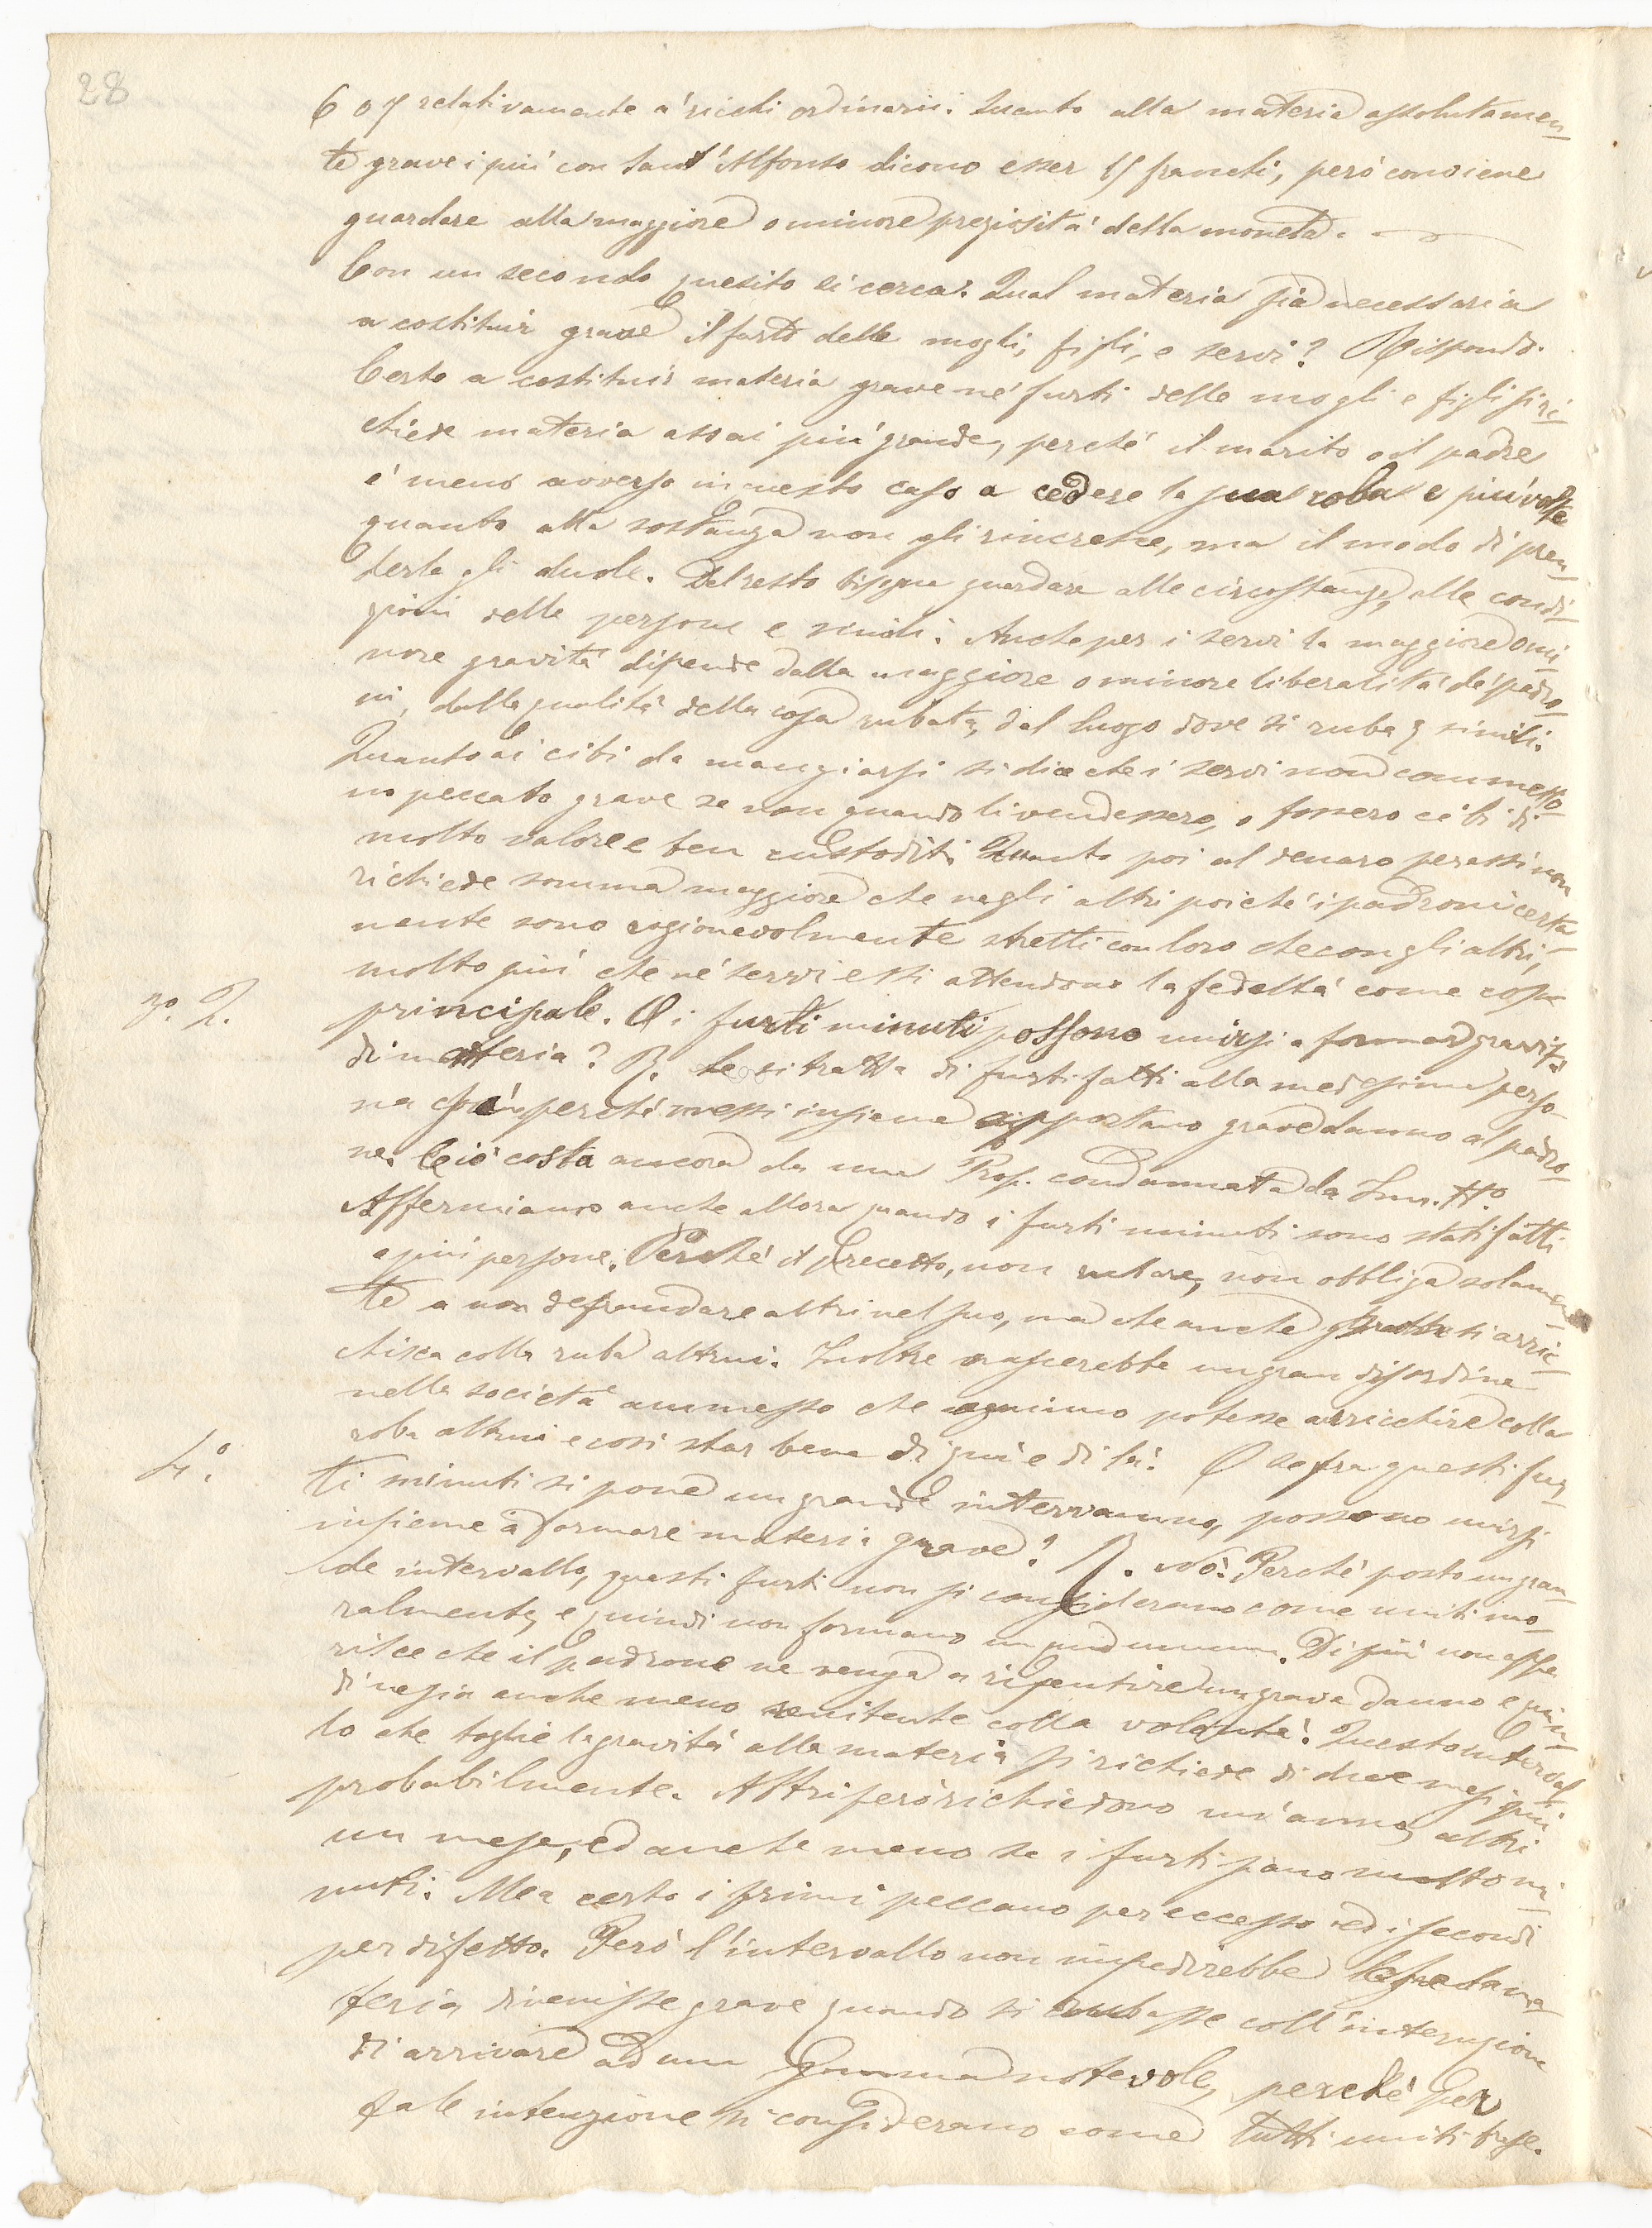 28
6 o 7 relativamente a' ricchi ordinarii. Quanto alla materia assolutamen-
te grave i più con Sant'Alfonso dicono esser 15 franchi, però conviene
guardare alla maggiore o minore preziosità della moneta.
Con un secondo quesito si cerca: Qual materia sia necessaria
a costituir grave il furto delle mogli, figli, e servi? Rispondo.
Certo a costituir materia grave ne' furti delle mogli e figli si ri-
chiede materia assai più grande, perchè il marito o il padre
è meno avverso in questo caso a cedere la sua roba e più volte
quanto alla sostanza non gli rincresce, ma il modo di pren-
derla gli duole. Del resto bisogna guardare alle circostanze, alle condi-
zioni delle persone e simili. Anche per i servi la maggiore o mi-
nore gravità dipende dalla maggiore o minore liberalità de' padro-
ni, dalla qualità della cosa rubata, dal luogo dove si ruba e simili.
Quanto ai cibi da mangiarsi si dice che i servi non commetto-
no peccato grave se non quando li vendessero, o fossero cibi di
molto valore e ben custoditi. Quanto poi al denaro per essi non
richiede somma maggiore che negli altri poichè i padroni certa-
mente sono ragionevolmente stretti con loro che con gli altri,
molto più che ne' servi essi attendono la fedeltà come cosa
3º. 2.
principale. Q i furti minuti possono unirsi a formar gravità
di materia? R. Se si tratta di furti fatti alla medesima perso-
na perchè messi insieme apportano grave danno al padro-
ne. Ciò costa ancora da una Prop. condannata da Inn. XIº.
Affermiamo anche allora quando i furti minuti sono stati fatti
a più persone. Perchè il precetto, non rubare, non obbliga solamen-
te a non defraudare altri nel suo, ma che anche si arric-
chisca colla roba altrui. Inoltre nascerebbe un gran disordine
nella società ammesso che ognuno potesse arricchire colla
roba altrui e così star bene di qui e di là.
4º.
Q se fra questi fur-
ti minuti si pone un grande intervanno, possono unirsi
insieme a formare materia grave? R. Nò. Perchè posto un gran-
de intervallo, questi furti non si considerano come uniti mo-
ralmente, e quindi non formano un quid unum. Di più non appa-
risce che il padrone ne venga a risentire un grave danno e quin-
di ne sia anche meno renitente colla volontà. Questo interval-
lo che toglie la gravità alla materia si richiede di due mesi più
probabilmente. Altri però richiedono un'anno, altri
un mese, ed anche meno se i furti siano molto mi-
nuti. Ma certo i primi peccano per eccesso ed i secondi
per difetto. Però l'intervallo non impedirebbe che la ma-
teria divenisse grave quando si rubasse coll'intenzione
di arrivare ad una somma notevole, perchè per
tale intenzione si considerano come tutti uniti